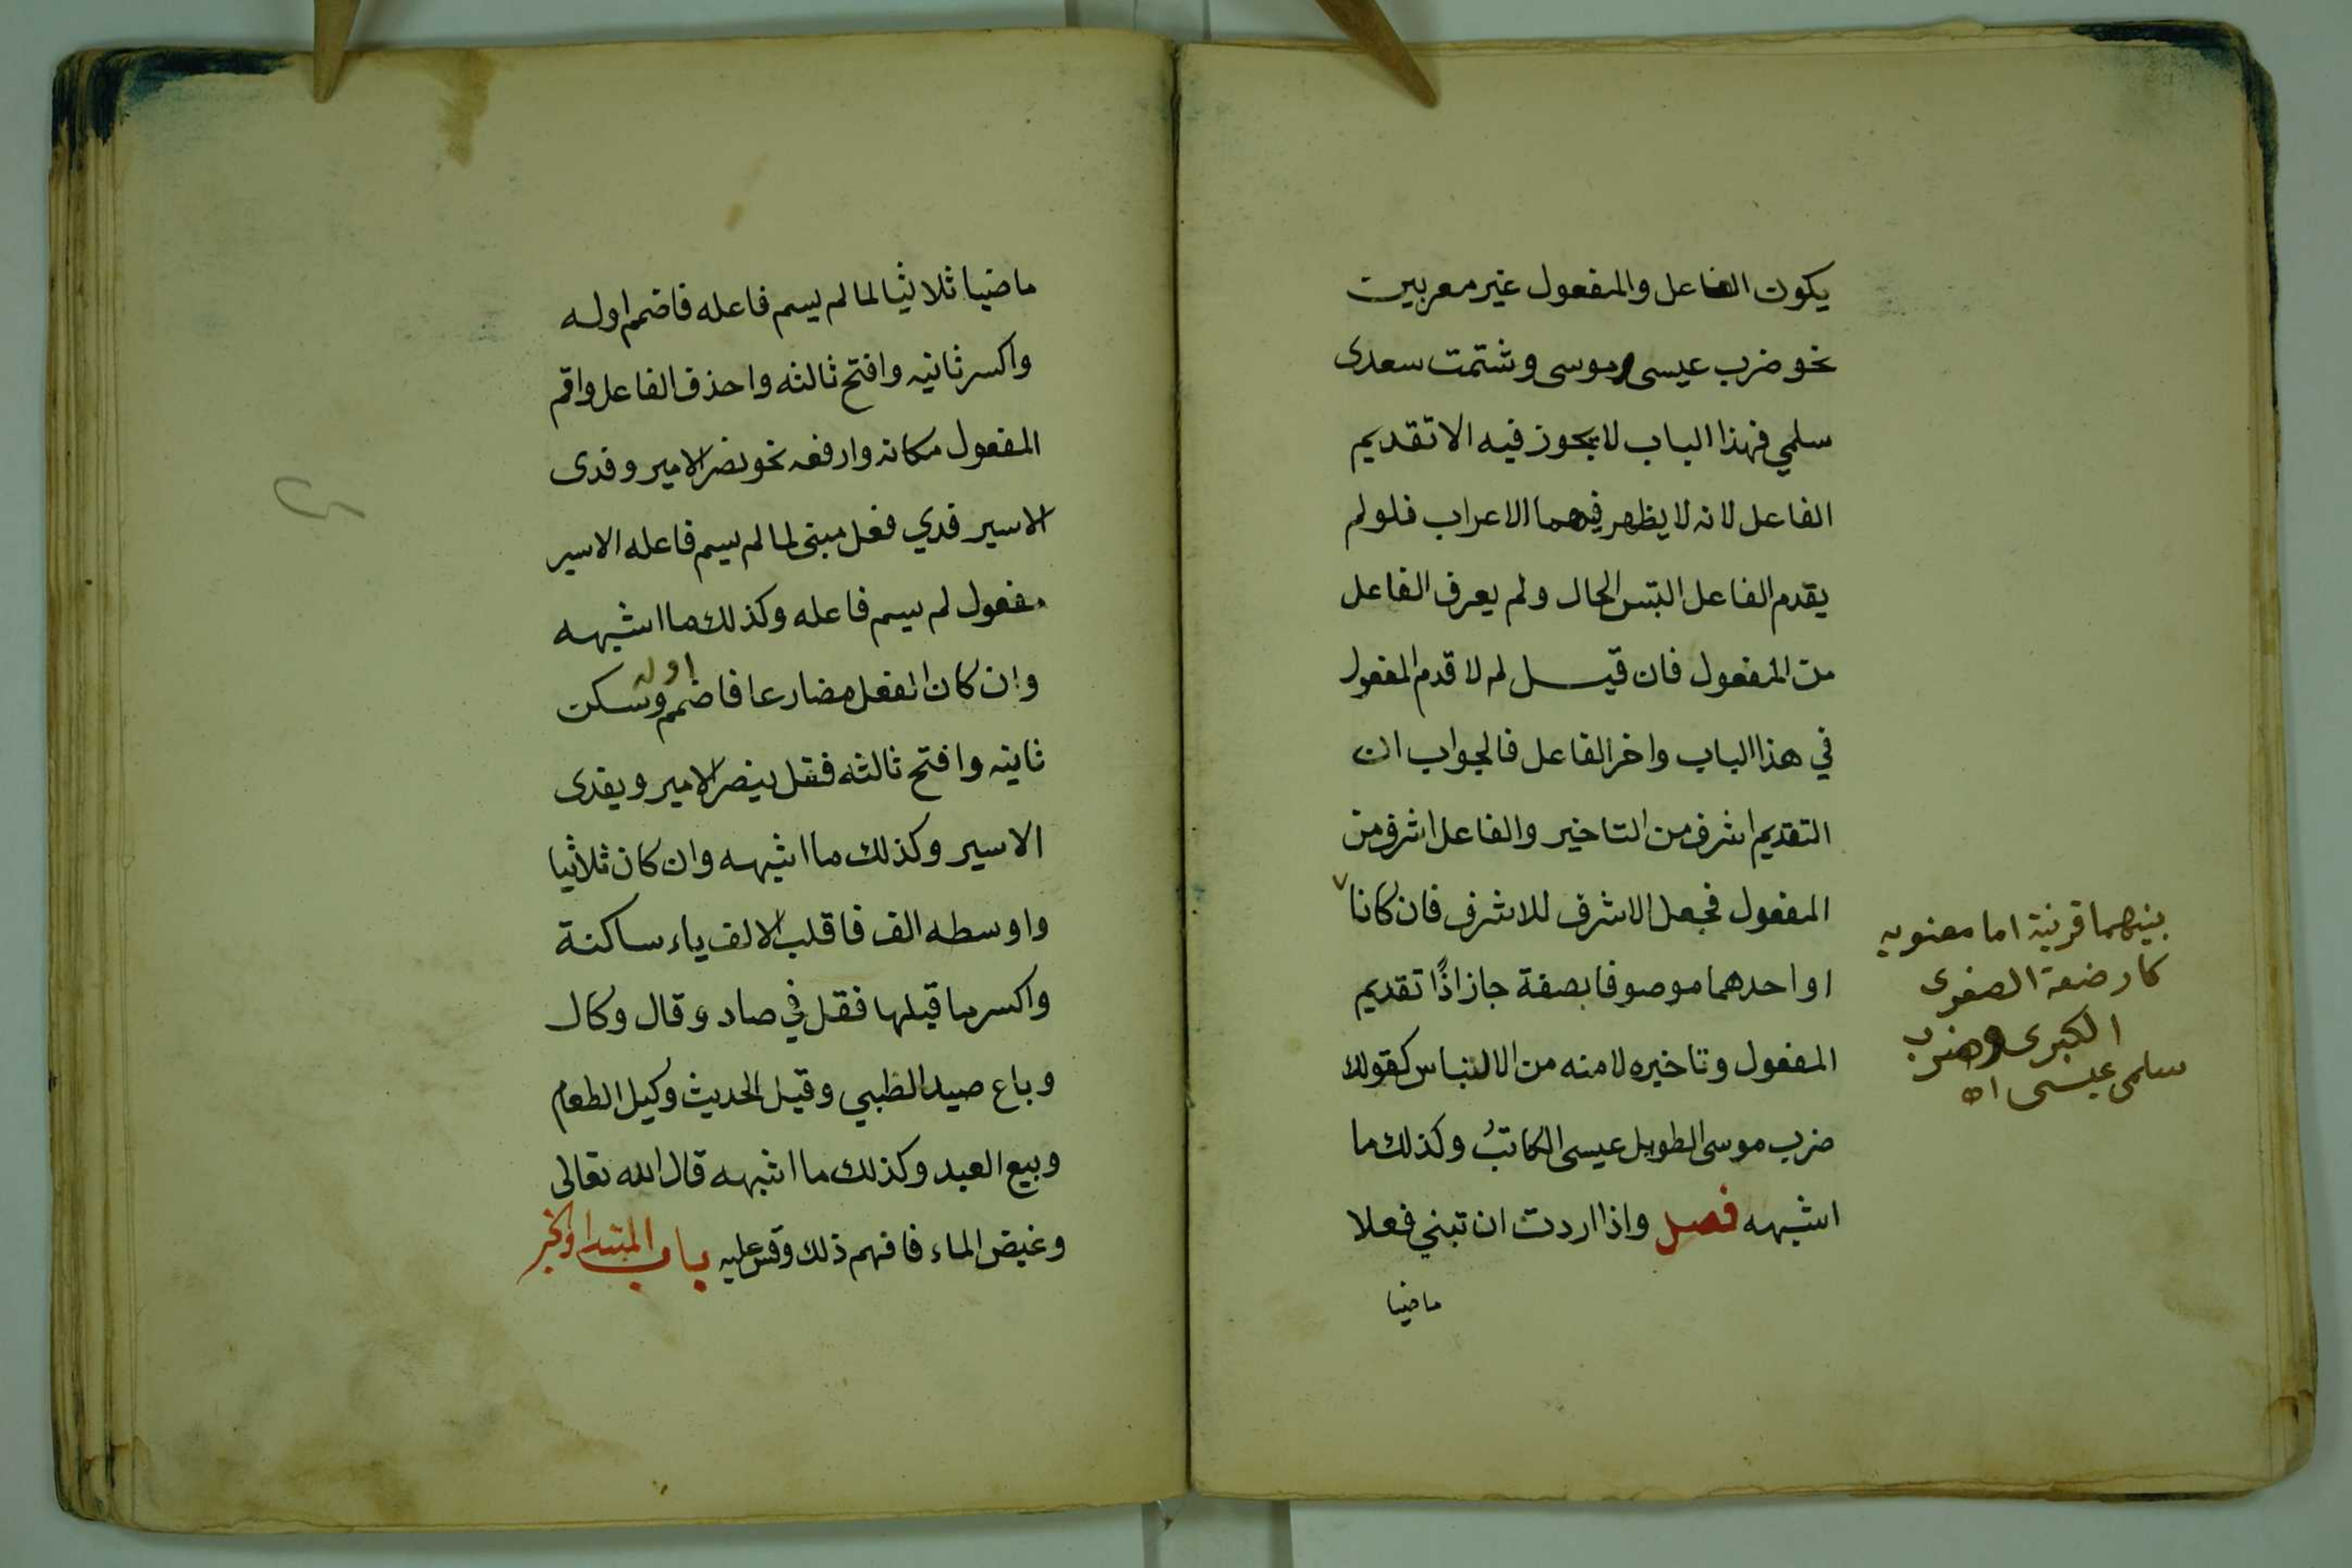 يكون الفاعل والمفعول غير معربين
نحو ضرب عيسى موسى وشتمت سعدى
سلمي فهذا الباب لا يجوز فيه الا تقديم
الفاعل لانه لا يظهر فيهما الاعراب فلو لم
يقدم الفاعل التبس الحال ولم يعرف الفاعل
من المفعول فان قيل لم لا قدم المفعول
في هذا الباب واخر الفاعل فالجواب ان
التقديم اشرف من التاخير والفاعل اشرف من
المفعول فجعل الاشرف للاشرف فان كانا
او احدهما موصوفا بصفة جاز اذًا تقديم
المفعول وتاخيره لامنه من الالتباس كقولك
ضرب موسى الطويل عيسى الكاتبُ وكذلك ما
اشبهه فصل واذا اردت ان تبني فعلا
ماضيا
بينهما قرينة اما معنويه
كارضعة الصغرى
الكبرى وضرب
سلمى عيسى اه
ماضيا ثلاثيا لما لم يسم فاعله فاضمم اوله
واكسر ثانيه وافتح ثالثه واحذف الفاعل واقم
المفعول مكانه وارفعه نحو نصر الامير وفدى
الاسير فدي فعل مبنى لما لم يسم فاعله الاسير
مفعول لم يسم فاعله وكذلك ما اشبهه
وان كان الفعل مضارعا فاضمم اوله وسكن
ثانيه وافتح ثالثه فقل ينصر الامير ويفدى
الاسير وكذلك ما اشبهه وان كان ثلاثيا
واوسطه الف فاقلب الالف ياء ساكنة
واكسر ما قبلها فقل في صاد وقال وكال
وباع صيد الظبي وقيل الحديث وكيل الطعام
وبيع العبد وكذلك ما اشبهه قال الله تعالى
وغيض الماء فافهم ذلك وقس عليه باب المبتدا والخبر